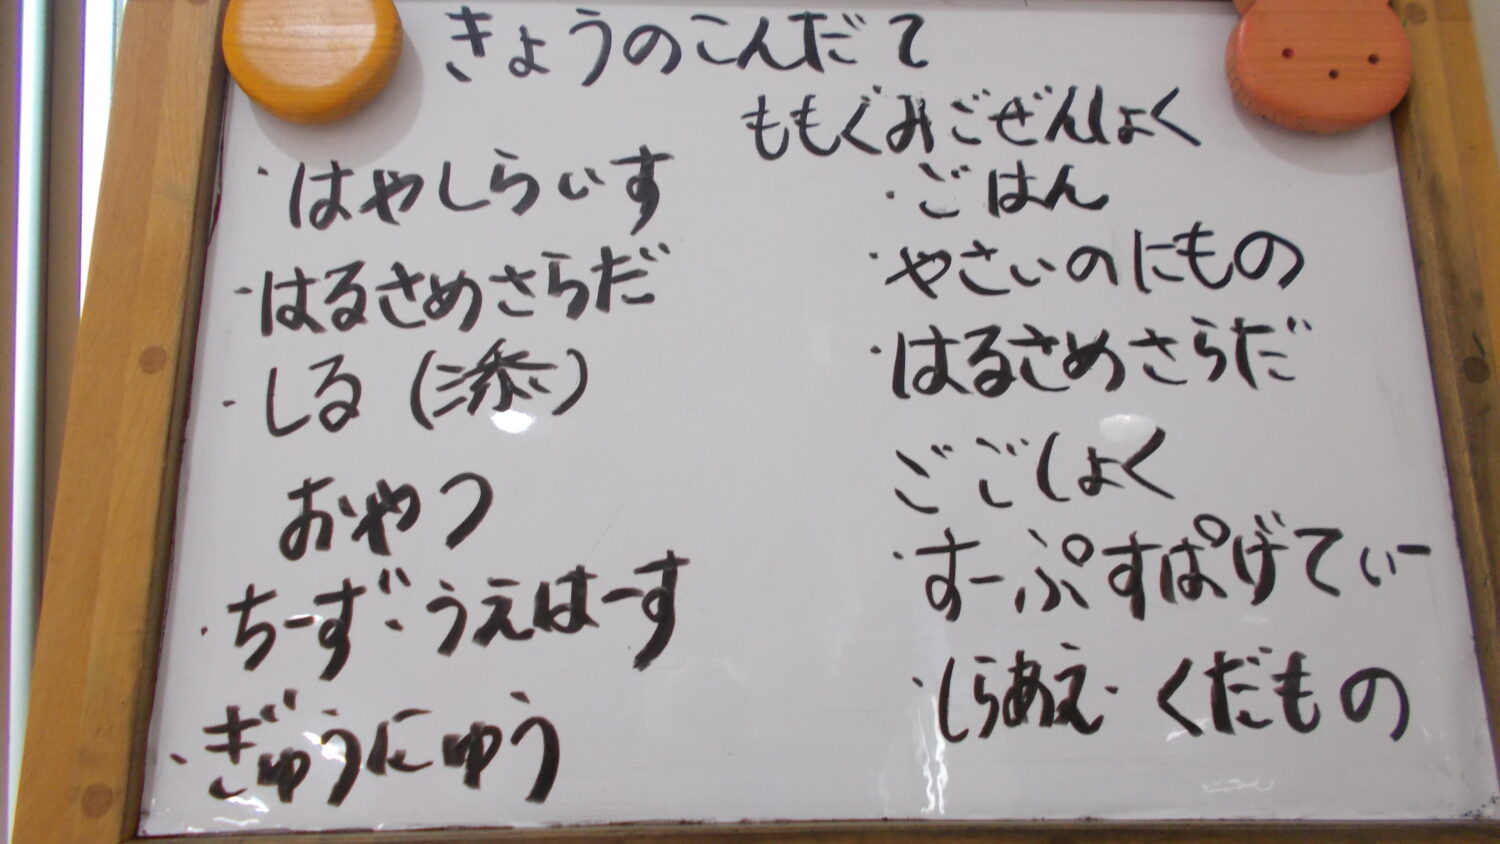 きょうのこんだて
・はやしらいす
・はるさめさらだ
・しる(添)
おやつ
・ちーず・うえはーす
・ぎゅうにゅう
ももぐみごぜんしょく
・ごはん
・やさいのにもの
・はるさめさらだ
ごごしょく
・すーぷすぱげてぃー
・しらあえ・くだもの